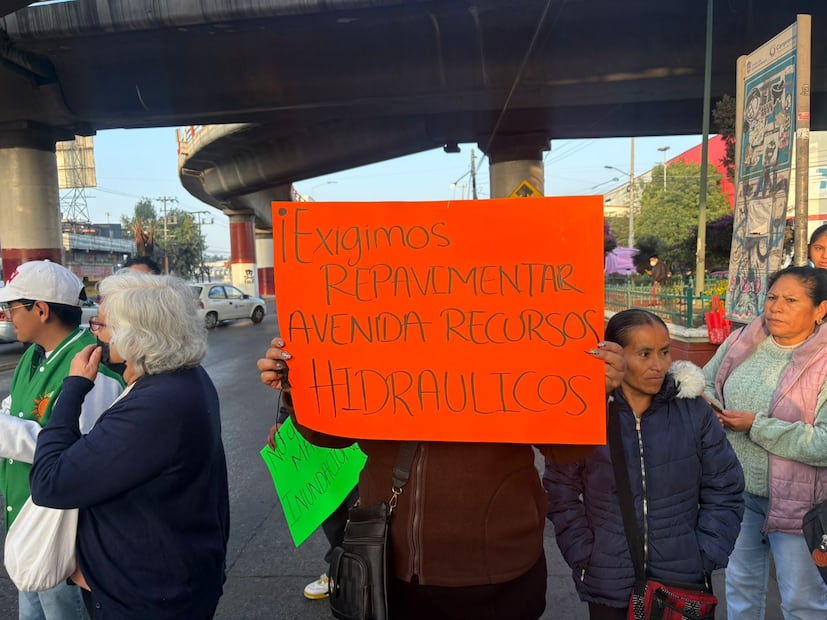 ¡Exigimos
REPAVIMENTAR
AVENIDA RECURSOS
HIDRAULICOS
INUNDACION